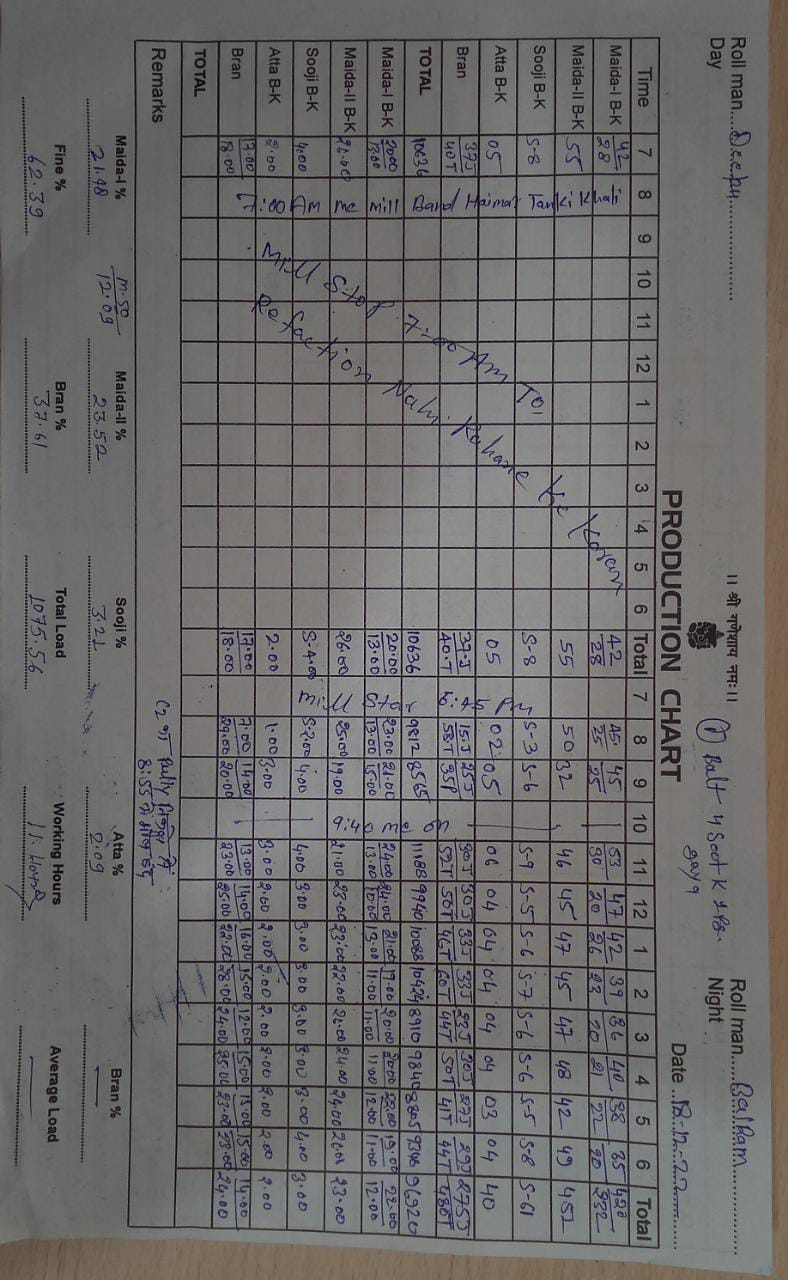 Roll man.... Deepu
Day
।। श्री गणेशाय नमः।।
① Balt 4 Soot K 1 Pg.
gaya
Roll man.... Balram
Night
PRODUCTION CHART
Date .. 18-12-22
Time 7 8 9 10 11 12 1 2 3 4 5 6 Total 7 8 9 10 11 12 1 2 3 4 5 6 Total
Maida-I B-K 42/28 42/28 45/25 45/25 53/30 47/20 42/26 39/23 36/20 40/21 38/22 35/20 420/232
Maida-II B-K 55 55 50 32 46 45 47 45 47 48 42 49 451
Sooji B-K S-8 S-8 S-3 S-6 S-9 S-5 S-6 S-7 S-6 S-6 S-5 S-8 S-61
Atta B-K 05 05 02 05 06 04 04 04 04 04 03 04 40
Bran 37J/40T 37.J/40.T 15.J/58T 25J/35P 30J/52T 30J/50T 33J/46T 33J/60T 23J/44T 30J/50T 27J/41T 29J/44T 275J/480T
TOTAL 10636 10636 9812 8565 11188 9940 10088 10424 8910 9840 8805 9348 96920
Maida-I B-K 20.00/13.00 20.00/13.00 23.00/13.00 21.00/15.00 24.00/13.00 24.00/10.00 21.00/13.00 19.00/11.00 20.00/11.00 20.00/11.00 22.00/12.00 19.00/11.00 22.00/12.00
Maida-II B-K 26.00 26.00 25.00 19.00 21.00 23.00 23.00 22.00 26.00 24.00 24.00 26.00 23.00
Sooji B-K 4.00 S-4.00 S-2.00 4.00 4.00 3.00 3.00 3.00 3.00 3.00 3.00 4.00 3.00
Atta B-K 2.00 2.00 1.00 3.00 3.00 2.00 2.00 2.00 2.00 2.00 2.00 2.00 2.00
Bran 17.00/18.00 17.00/18.00 7.00/29.00 14.00/20.00 13.00/23.00 14.00/25.00 16.00/22.00 15.00/28.00 12.00/24.00 15.00/25.00 15.00/23.00 15.00/23.00 14.00/24.00
TOTAL
7:00 AM me mill Band Haimal Tanki Khali
Mill Stop 7:00 AM To.
Refaction Nahi Rahane Ke Karan
mill Star 6:45 PM
9:40 me on
Remarks
C2 का Pully
8:55 में बंद
Maida-I % 21.48
M-50/12.09
Maida-II % 23.52
Sooji % 3.21
Atta % 2.09
Bran % —
Fine % 62.39
Bran % 37.61
Total Load 1075.56
Working Hours 11. Hours
Average Load —